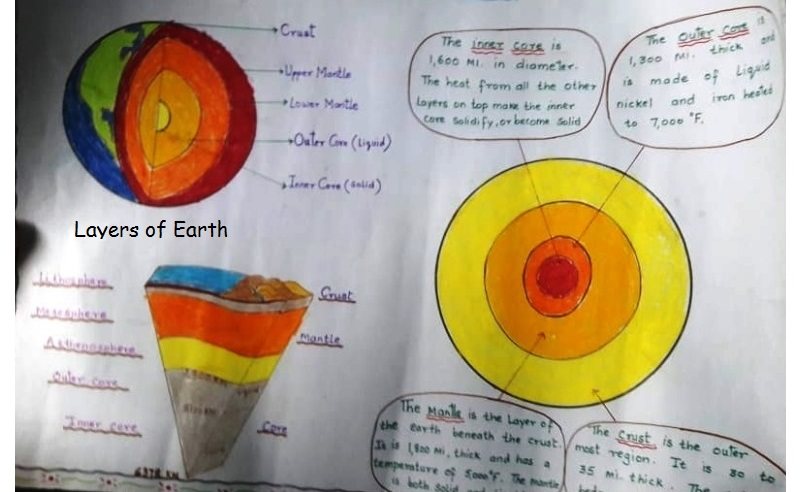 Crust
Upper Mantle
Lower Mantle
Outer Core (Liquid)
Inner Core (Solid)
Layers of Earth
Lithosphere
Mesosphere
Asthenosphere
Outer core
Inner core
Crust
Mantle
Core
6378 KM
The inner core is
1,600 MI. in diameter.
The heat from all the other
layers on top make the inner
core Solidify, or become Solid
The Outer Core is
1,300 MI. thick and
is made of Liquid
nickel and iron heated
to 7,000 °F.
The Mantle is the Layer of
the earth beneath the crust.
It is 1,800 MI, thick and has a
temperature of 5,000°F. The mantle
is both Solid and
The Crust is the outer
most region. It is 30 to
35 mi. thick. The